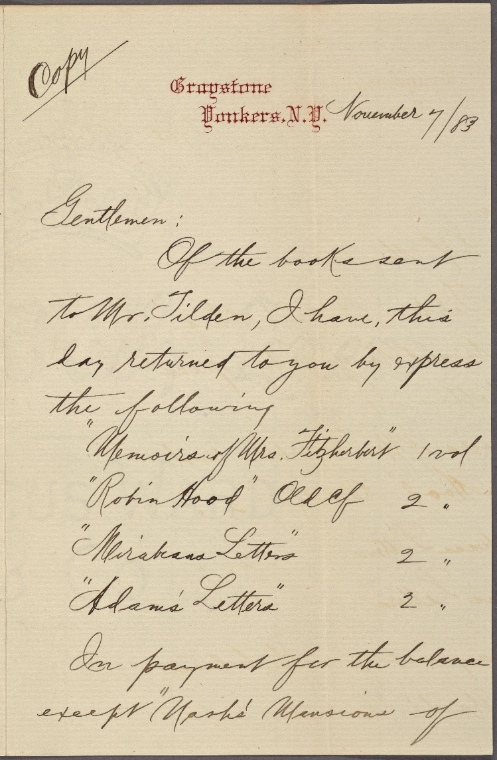 Copy
Graystone
Yonkers, N.Y. November 7/83
Gentlemen:
Of the books sent
to Mr. Tilden, I have, this
day returned to you by express
the following
"Memoirs of Mrs. Fitzherbert" 1 vol
"Robin Hood" Old Cf 2 "
"Mirabeau Letters" 2 "
"Adam's Letters" 2 "
In payment for the balance
except "Nash's Mansions of